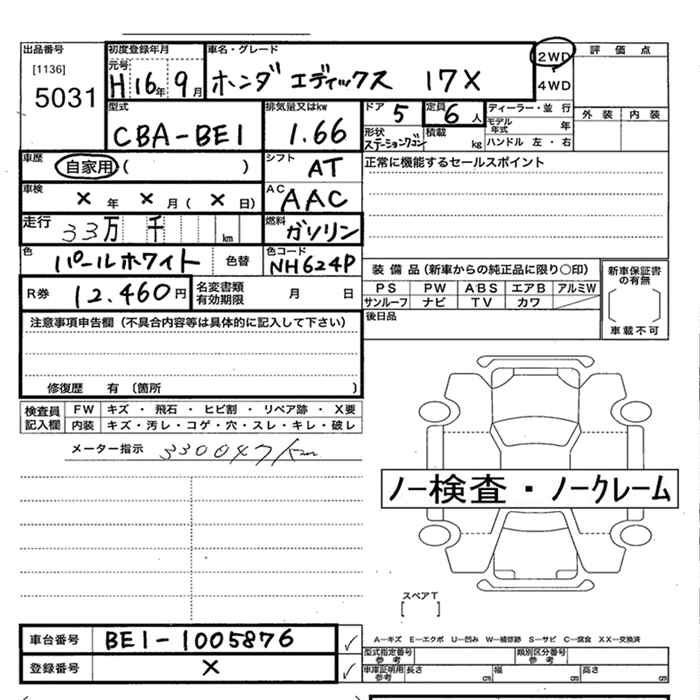 出品番号 初度登録年月 車名・グレード 2WD 評価点
[1136] 元号
5031 H16年 9月 ホンダ エディックス 17X 4WD
型式 排気量又はkw ドア 5 定員 6人 ディーラー・並行 外装 内装
CBA-BE1 1.66 形状 ステーションワゴン 積載 kg モデル年式 年
ハンドル 左・右
車歴 自家用 ( ) シフト AT 正常に機能するセールスポイント
車検 × 年 × 月 ( × 日) AC AAC
走行 33万 千 km 燃料 ガソリン
色 パールホワイト 色替 色コード NH624P
装備品(新車からの純正品に限り○印) 新車保証書の有無
R券 12.460円 名変書類有効期限 月 日 PS PW ABS エアB アルミW
サンルーフ ナビ TV カワ
注意事項申告欄(不具合内容等は具体的に記入して下さい) 後日品 車載不可
修復歴 有 (箇所 )
検査員記入欄 FW キズ・飛石・ヒビ割・リペア跡・X要
内装 キズ・汚レ・コゲ・穴・スレ・キレ・破レ
メーター指示 330047km
ノー検査・ノークレーム
スペアT
[ ]
車台番号 BE1-1005876
A—キズ E—エクボ U—凹み W—補修跡 S—サビ C—腐食 XX—交換済
登録番号 ×
型式指定番号 参考 類別区分番号 参考
車庫証明用 参考 長さ cm 幅 cm 高さ cm